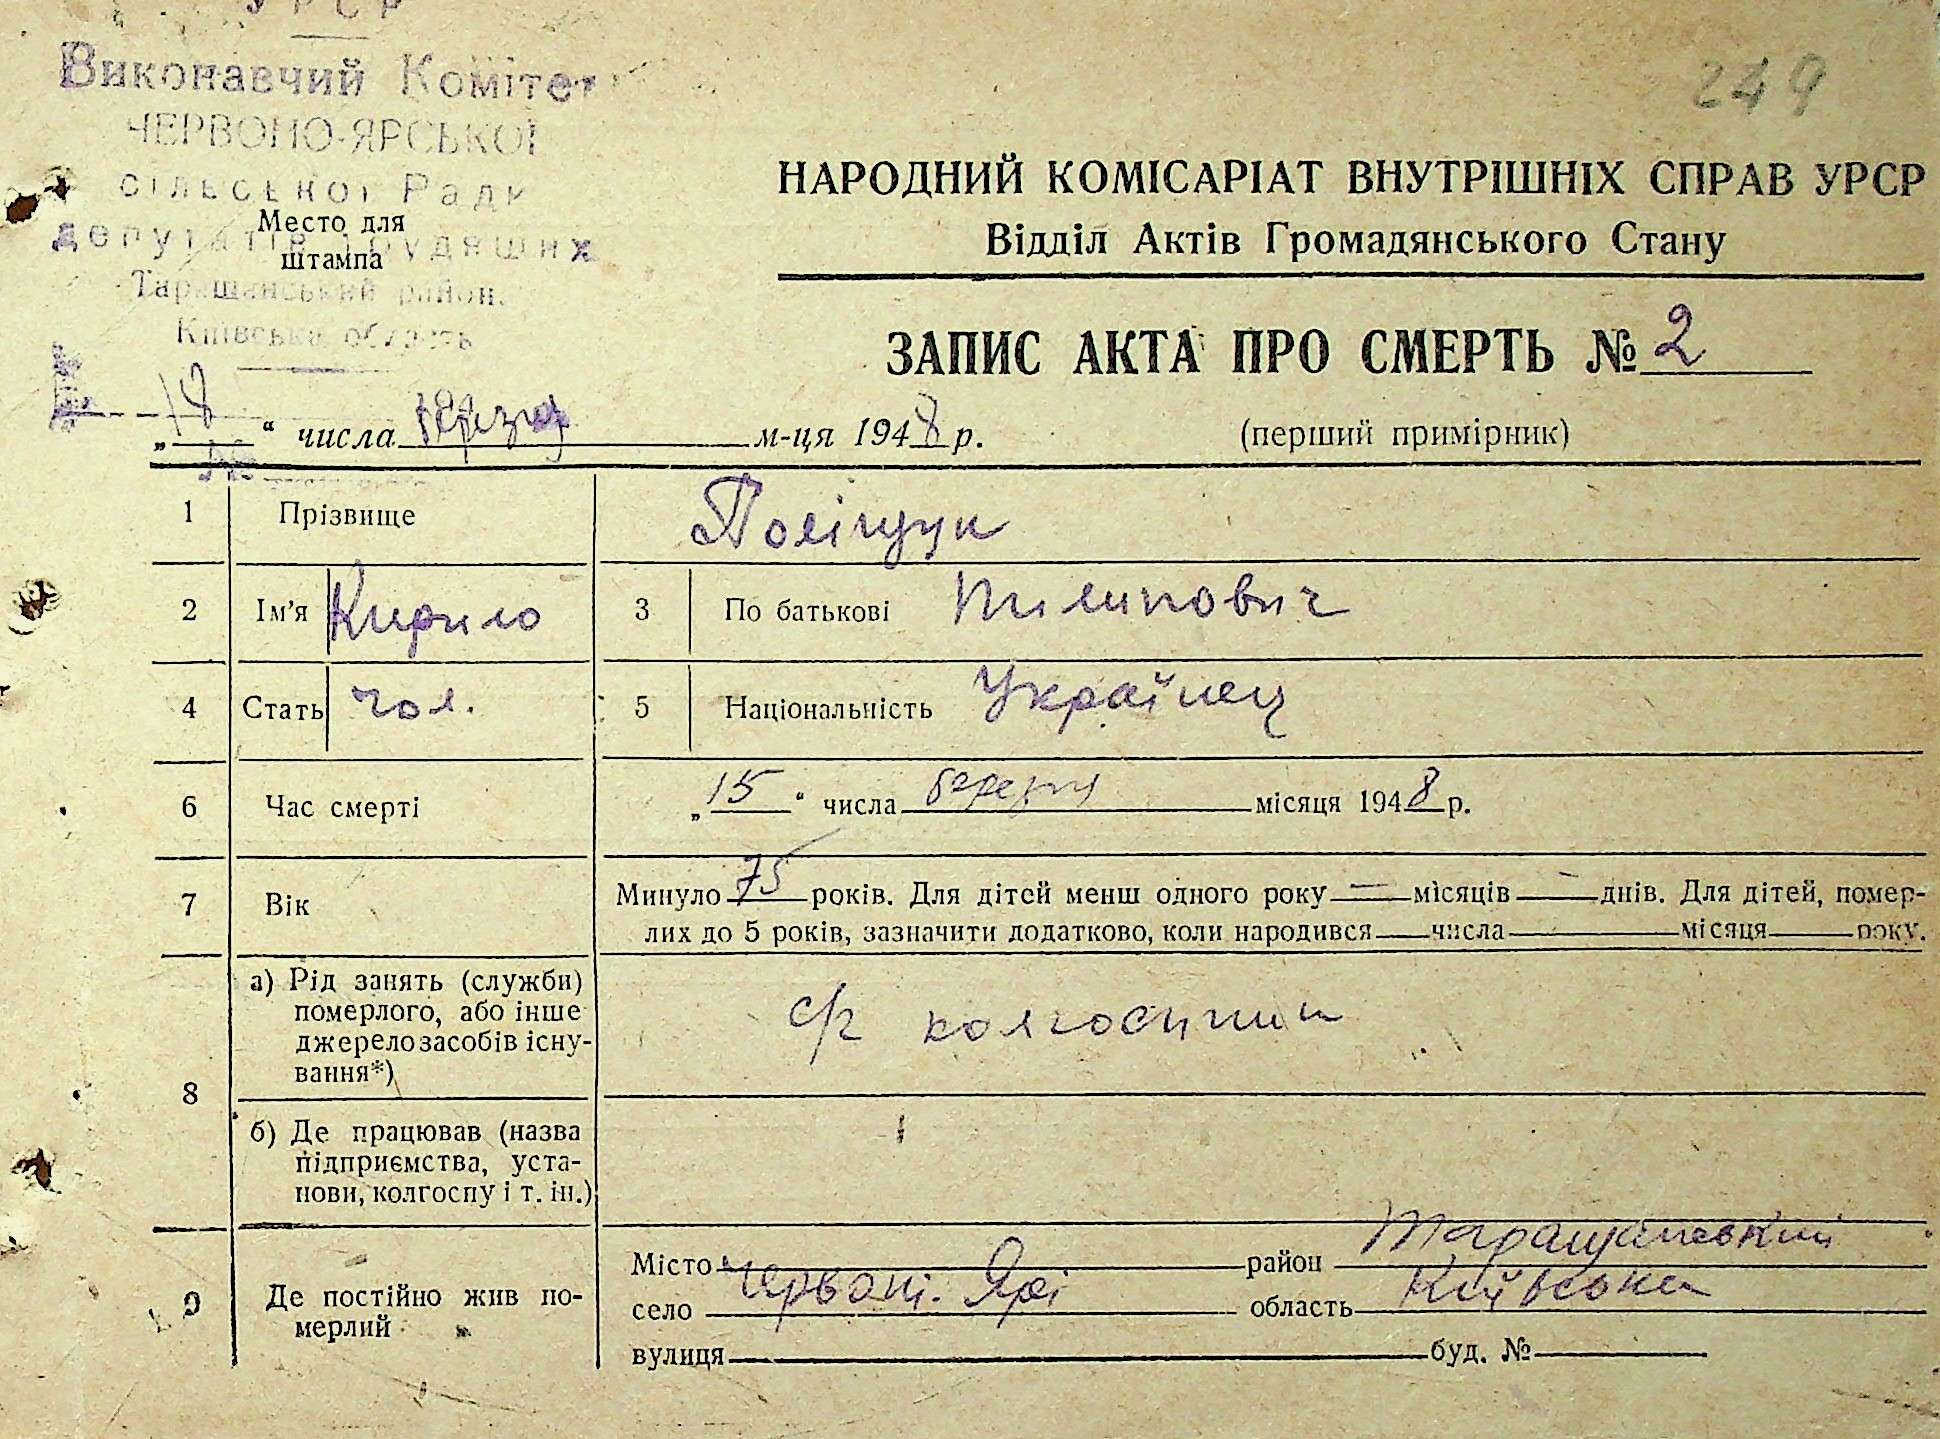 УРСР
Виконавчий Комітет
ЧЕРВОНО-ЯРСЬКОЇ
сільської Ради
депутатів трудящих
Таращанський район,
Київська область
Место для
штампа
249
НАРОДНИЙ КОМІСАРІАТ ВНУТРІШНІХ СПРАВ УРСР
Відділ Актів Громадянського Стану
ЗАПИС АКТА ПРО СМЕРТЬ № 2
„18“ числа березня м-ця 1948 р.
(перший примірник)
1 Прізвище Поліщук
2 Ім'я Кирило 3 По батькові Пилипович
4 Стать чол. 5 Національність Українец
6 Час смерті „15“ числа березня місяця 1948 р.
7 Вік Минуло 75 років. Для дітей менш одного року — місяців — днів. Для дітей, помер-
лих до 5 років, зазначити додатково, коли народився числа місяця року.
8 а) Рід занять (служби)
померлого, або інше
джерело засобів існу-
вання*)
с/г колгоспник
б) Де працював (назва
підприємства, уста-
нови, колгоспу і т. ін.)
9 Де постійно жив по-
мерлий
Місто район Таращанський
село Червоні Ярі область Київська
вулиця буд. №